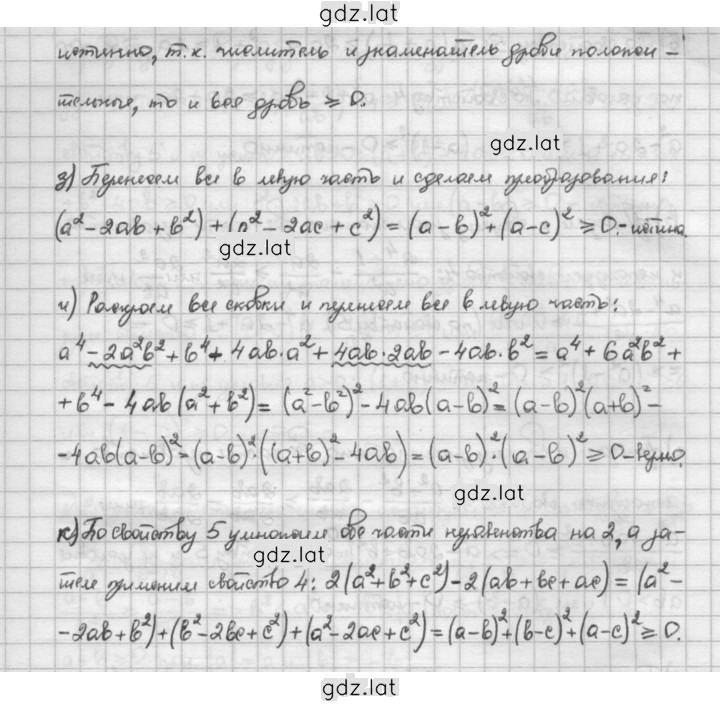 gdz.lat
истинно, т.к. числитель и знаменатель дроби положи-
тельные, то и вся дробь ≥ 0.
gdz.lat
з) Перенесем все в левую часть и сделаем преобразования:
(a² - 2ab + b²) + (a² - 2ac + c²) = (a - b)² + (a - c)² ≥ 0. - истина.
gdz.lat
и) Раскроем все скобки и перенесем все в левую часть:
a⁴ - 2a²b² + b⁴ - 4ab·a² + 4ab·2ab - 4ab·b² = a⁴ + 6a²b² +
+ b⁴ - 4ab(a² + b²) = (a² - b²)² - 4ab(a - b)² = (a - b)²(a + b)² -
- 4ab(a - b)² = (a - b)²·((a + b)² - 4ab) = (a - b)²·(a - b)² ≥ 0 - верно.
gdz.lat
к) По свойству 5 умножаем обе части неравенства на 2, а за-
gdz.lat
тем применим свойство 4: 2(a² + b² + c²) - 2(ab + bc + ac) = (a² -
- 2ab + b²) + (b² - 2bc + c²) + (a² - 2ac + c²) = (a - b)² + (b - c)² + (a - c)² ≥ 0.
gdz.lat